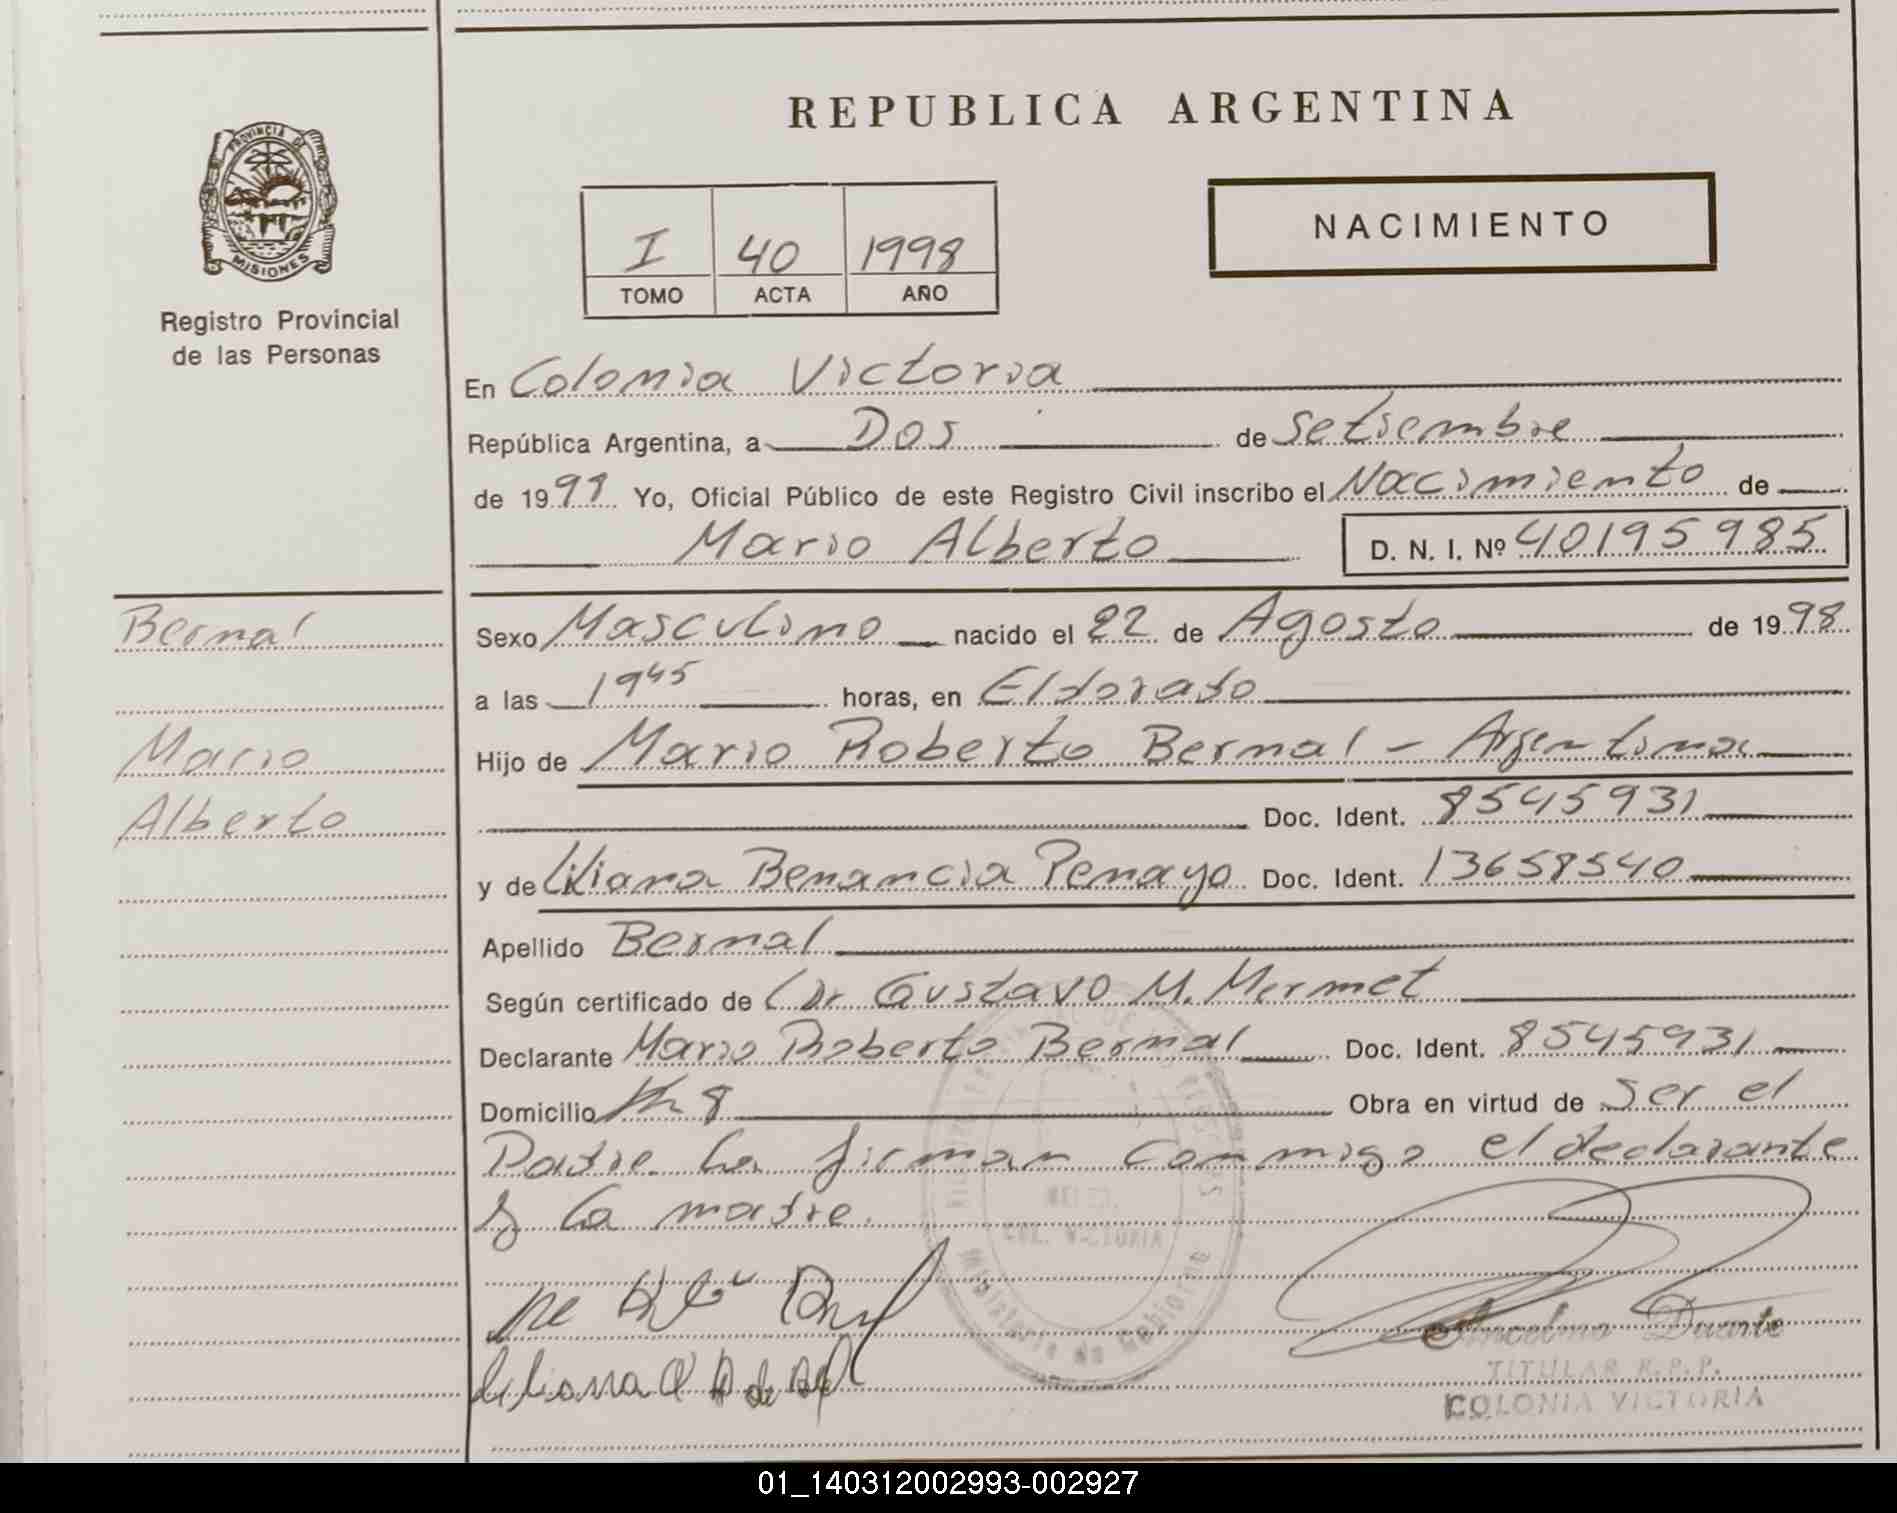 REPUBLICA ARGENTINA
PROVINCIA DE MISIONES
Registro Provincial
de las Personas
I 40 1998
TOMO ACTA AÑO
NACIMIENTO
En Colonia Victoria
República Argentina, a Dos de Setiembre
de 1998 Yo, Oficial Público de este Registro Civil inscribo el Nacimiento de
Mario Alberto D. N. I. Nº 40195985
Bernal
Mario
Alberto
Sexo Masculino nacido el 22 de Agosto de 1998
a las 19 45 horas, en Eldorado
Hijo de Mario Roberto Bernal - Argentina
Doc. Ident. 8545931
y de Liliana Benancia Penayo Doc. Ident. 13658540
Apellido Bernal
Según certificado de Dr Gustavo M. Mermet
Declarante Mario Roberto Bernal Doc. Ident. 8545931
Domicilio Km 8 Obra en virtud de ser el
Padre La firman conmigo el declarante
y la madre.
COL. VICTORIA
Ministerio de Gobierno
Liliana
Ancelmo Duarte
TITULAR R.P.P.
COLONIA VICTORIA
01_140312002993-002927